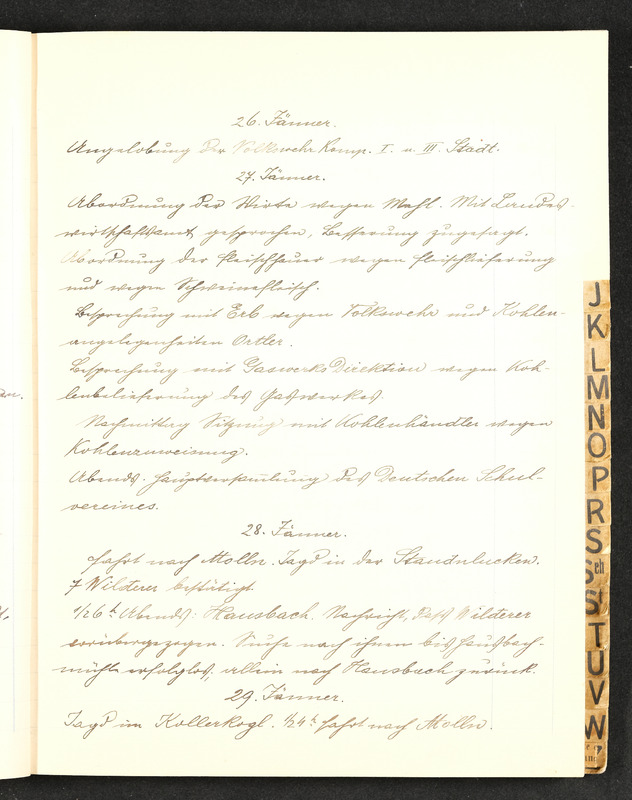 26. Jänner.
Angelobung der Volkswehr Komp. I. u. III. Städt.
27. Jänner.
Abordnung der Wirte wegen Mehl. Mit Landes-
wirtschaftsamt gesprochen, Besserung zugesagt.
Abordnung der Fleischhauer wegen Fleischlieferung
und wegen Schweinefleisch.
Besprechung mit Erb wegen Volkswehr und Kohlen-
angelegenheiten Ortler.
Besprechung mit Gaswerks Direktion wegen Koh-
lenbelieferung des Gaswerkes.
Nachmittag Sitzung mit Kohlenhändler wegen
Kohlenzuweisung.
Abends. Hauptversammlung des Deutschen Schul-
vereines.
28. Jänner.
Fahrt nach Molln. Jagd in der
7 Wilderer bestätigt.
1/2 6 h Abends: Hausbach. Nachricht, dass Wilderer
vorübergezogen. Suche nach ihnen bis Hausbach-
mühle erfolglos, allein nach Hausbach zurück.
29. Jänner.
Jagd im Kollerkogl. 1/2 4 h Fahrt nach Molln.
J
K
L
M
N
O
P
R
S
Sch
St
T
U
V
W